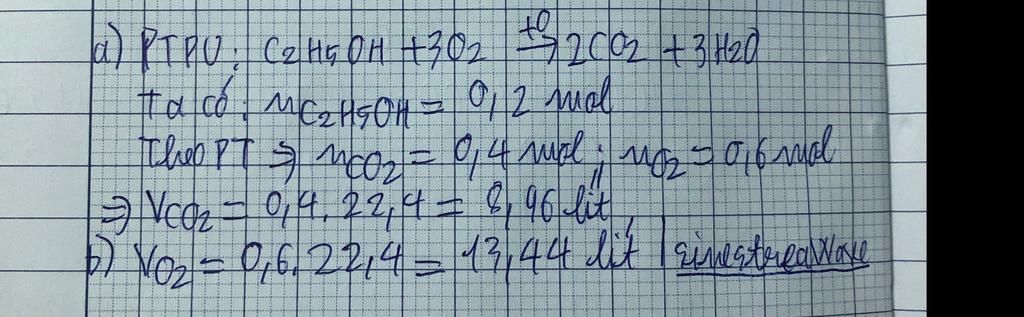 a) PTPU: C2H5OH + 3O2 t0→ 2CO2 + 3H2O
Ta có: nC2H5OH = 0,2 mol
Theo PT ⇒ nCO2 = 0,4 mol; nO2 = 0,6 mol
⇒ VCO2 = 0,4.22,4 = 8,96 lít
b) VO2 = 0,6.22,4 = 13,44 lít